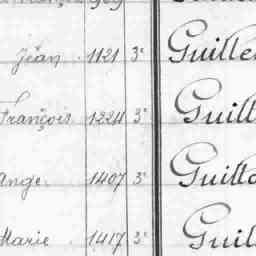 Jean 1121 3e Guille
François 1224 3e Guill
Ange 1407 3e Guillo
Marie 1417 3e Guil